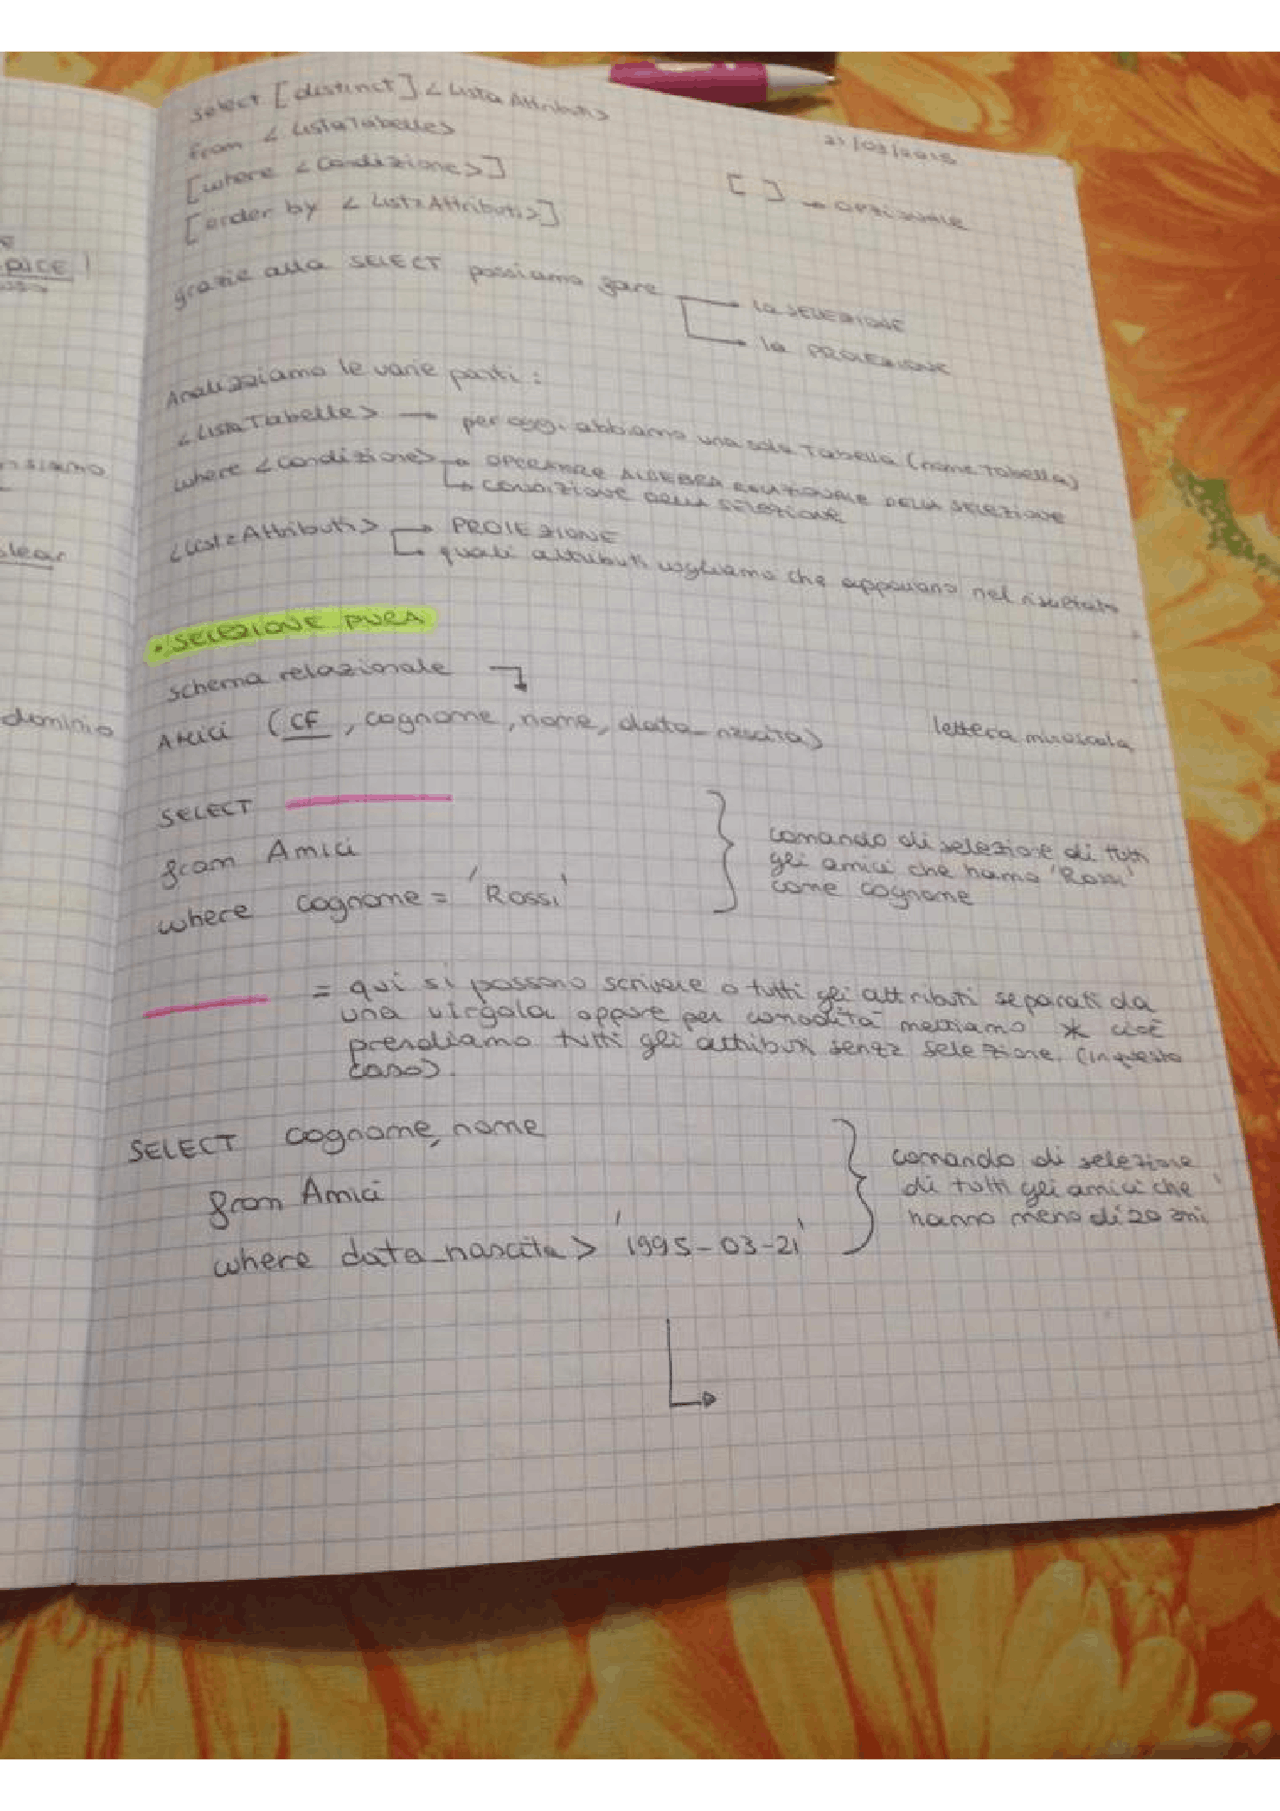 select [distinct] < Lista Attributi>
from < ListaTabelle>
21/03/2015
[where < Condizione>]
[ ] → OPZIONALE
[order by < ListaAttributi>]
grazie alla SELECT possiamo fare
→ la SELEZIONE
→ la PROIEZIONE
PICE !
Analizziamo le varie parti :
< ListaTabelle> → per oggi abbiamo una sola Tabella (nome Tabella)
where < condizione> → OPERATORE ALGEBRA RELAZIONALE DELLA SELEZIONE
→ CONDIZIONE DELLA SELEZIONE
<ListaAttributi> → PROIEZIONE
→ quali attributi vogliamo che appaiano nel risultato
• SELEZIONE PURA
schema relazionale
dominio
Amici (CF, cognome, nome, data_nascita)
lettera minuscola
SELECT
from Amici
where cognome = 'Rossi'
comando di selezione di tutti
gli amici che hanno 'Rossi'
come cognome
= qui si possono scrivere o tutti gli attributi separati da
una virgola oppure per comodità mettiamo * cioè
prendiamo tutti gli attributi senza selezione. (in questo
caso).
SELECT cognome, nome
from Amici
where data_nascita > '1995-03-21'
comando di selezione
di tutti gli amici che
hanno meno di 20 anni